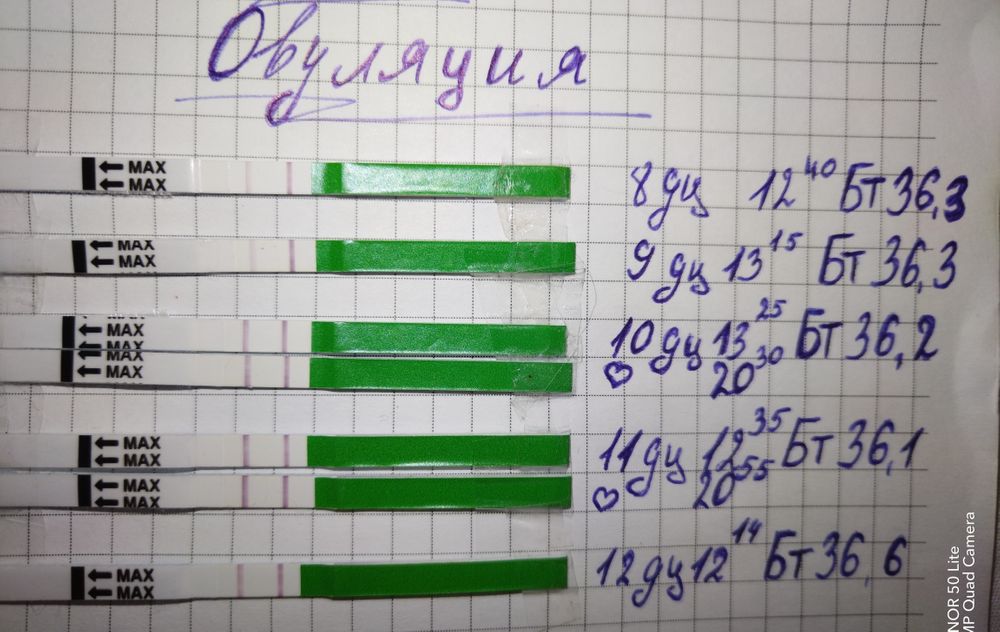 Овуляция
← MAX
← MAX
8 дц 12⁴⁰ Бт 36,3
← MAX
← MAX
9 дц 13¹⁵ Бт 36,3
← MAX
← MAX
10 дц 13²⁵ Бт 36,2
← MAX
← MAX
♡ 20³⁰
← MAX
← MAX
11 дц 12³⁵ Бт 36,1
← MAX
← MAX
♡ 20⁵⁵
← MAX
← MAX
12 дц 12¹⁴ Бт 36,6
NOR 50 Lite
MP Quad Camera